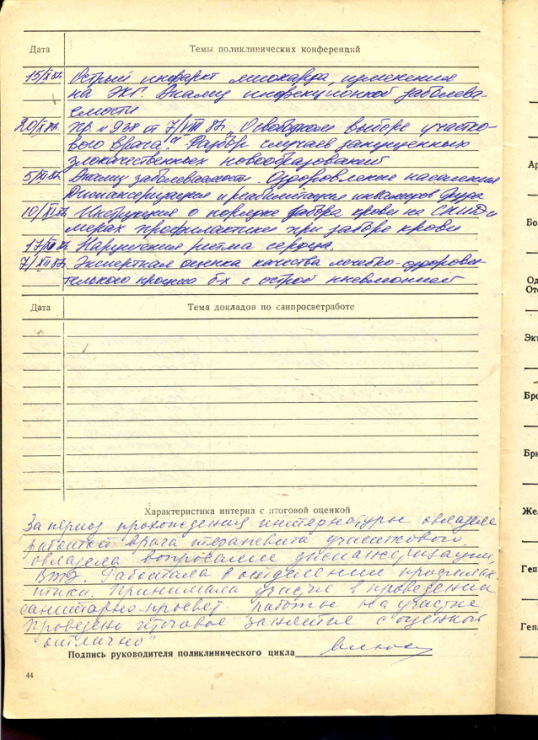 Дата Темы поликлинических конференций
Острый инфаркт миокарда, изменения
на ЭКГ. Анализ инфекционной заболева-
емости
Пр. № 938 от 7/VIII 87г. О свободном выборе участко-
вого врача". Разбор случаев запущенных
злокачественных новообразований
Анализ заболеваемости. Оздоровление населения
Диспансеризация и реабилитация инвалидов
Инструкция о порядке забора крови на СПИД и
мерах профилактики при заборе крови
Нарушения ритма сердца.
Экспертная оценка качества лечебно-оздорови-
тельного процесса б-х с острой пневмонией
Дата Тема докладов по санпросветработе
Характеристика интерна с итоговой оценкой
За период прохождения интернатуры овладела
работой врача терапевта участкового
овладела вопросами диспансеризации
ВТЭ. Работала в отделении профилак-
тики. Принимала участие в проведении
санитарно-просвет. работы на участке
Проведено итоговое занятие с оценкой
"отлично"
Подпись руководителя поликлинического цикла
44
Ар
Бо
Од
Оте
Эк
Бро
Бри
Же
Геп
Гепа